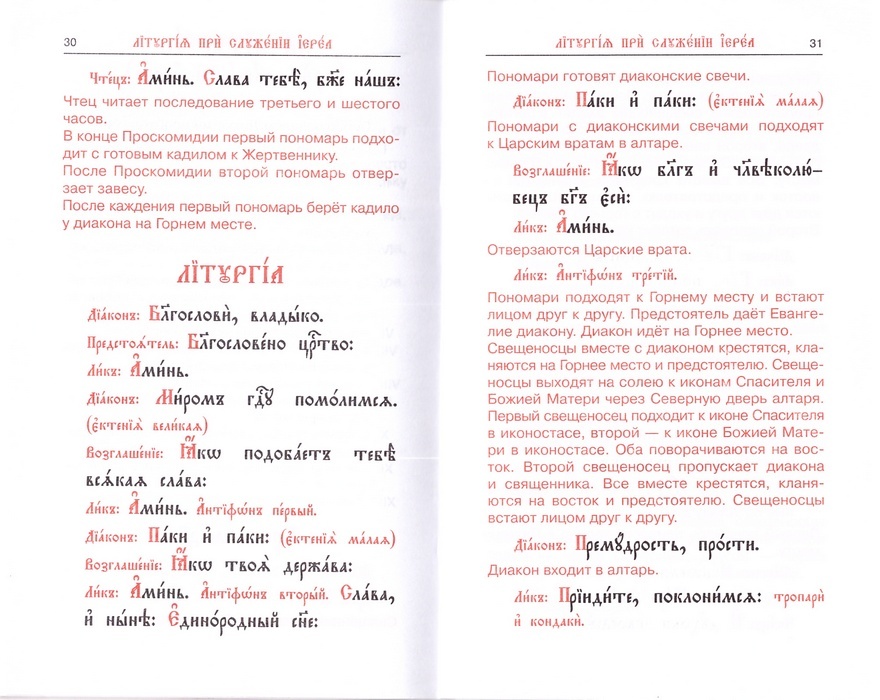 30 Лїтꙋргі́ѧ прѝ слꙋже́нїи і҆ере́а
Чте́цъ: А҆ми́нь. Сла́ва тебѣ̀, бж҃е на́шъ:
Чтец читает последование третьего и шестого
часов.
В конце Проскомидии первый пономарь подхо-
дит с готовым кадилом к Жертвеннику.
После Проскомидии второй пономарь отвер-
зает завесу.
После каждения первый пономарь берёт кадило
у диакона на Горнем месте.
ЛЇТꙊРГІ́А
Дїа́конъ: Бл҃гословѝ, влады́ко.
Предстоѧ́тель: Бл҃гослове́но црⷭ҇тво:
Ли́къ: А҆ми́нь.
Дїа́конъ: Ми́ромъ гдⷭ҇ꙋ помо́лимсѧ.
(є҆ктенїѧ̀ вели́каѧ)
Возглаше́нїе: Ꙗ҆́кѡ подоба́етъ тебѣ̀
всѧ́каѧ сла́ва:
Ли́къ: А҆ми́нь. А҆нтїфѡ́нъ пе́рвый.
Дїа́конъ: Па́ки и҆ па́ки: (є҆ктенїѧ̀ ма́лаѧ)
Возглаше́нїе: Ꙗ҆́кѡ твоѧ̀ держа́ва:
Ли́къ: А҆ми́нь. А҆нтїфѡ́нъ вторы́й. Сла́ва,
и҆ ны́нѣ: Є҆диноро́дный сн҃е:
Лїтꙋргі́ѧ прѝ слꙋже́нїи і҆ере́а 31
Пономари готовят диаконские свечи.
Дїа́конъ: Па́ки и҆ па́ки: (є҆ктенїѧ̀ ма́лаѧ)
Пономари с диаконскими свечами подходят
к Царским вратам в алтаре.
Возглаше́нїе: Ꙗ҆́кѡ бл҃гъ и҆ чл҃вѣколю́-
бецъ бг҃ъ є҆сѝ:
Ли́къ: А҆ми́нь.
Отверзаются Царские врата.
Ли́къ: А҆нтїфѡ́нъ тре́тїй.
Пономари подходят к Горнему месту и встают
лицом друг к другу. Предстоятель даёт Еванге-
лие диакону. Диакон идёт на Горнее место.
Свещеносцы вместе с диаконом крестятся, кла-
няются на Горнее место и предстоятелю. Свеще-
носцы выходят на солею к иконам Спасителя и
Божией Матери через Северную дверь алтаря.
Первый свещеносец подходит к иконе Спасителя
в иконостасе, второй — к иконе Божией Мате-
ри в иконостасе. Оба поворачиваются на вос-
ток. Второй свещеносец пропускает диакона
и священника. Все вместе крестятся, кланя-
ются на восток и предстоятелю. Свещеносцы
встают лицом друг к другу.
Дїа́конъ: Премꙋ́дрость, про́сти.
Диакон входит в алтарь.
Ли́къ: Прїиди́те, поклони́мсѧ: тропарѝ
и҆ кондакѝ.